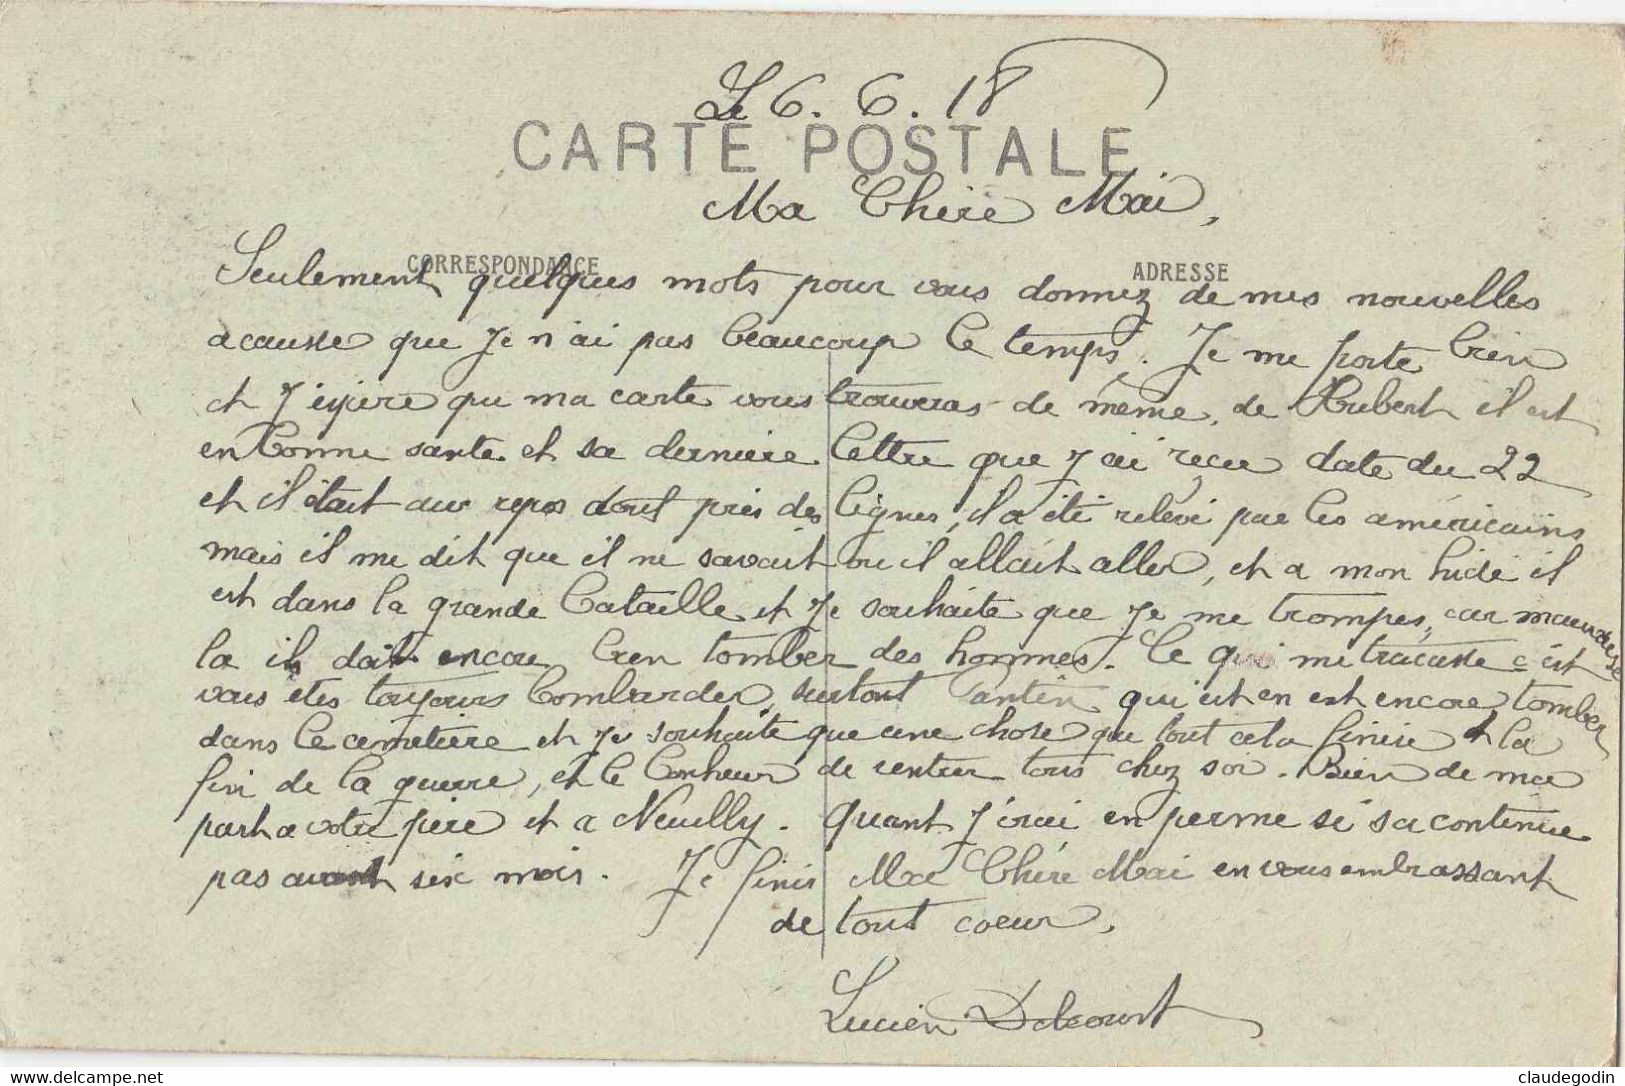 Le 6. 6. 18
CARTE POSTALE
Ma Chère Mai,
CORRESPONDANCE
ADRESSE
Seulement quelques mots pour vous donnez de mes nouvelles
a cause que Je n'ai pas beaucoup le temps. Je me porte bien
et J'espère que ma carte vous trouveras de même, de Hubert il est
en bonne sante et sa dernière lettre que J'ai reçue date du 22
et il était au repos tout près des lignes, il a été relevé par les américains
mais il me dit que il ne savait ou il allait aller, et a mon hidé il
est dans la grande bataille et Je souhaite que Je me trompes, car
la il doit encore bien tomber des hommes. Ce qui me tracasse c'est
vous êtes toujours bombarder, surtout Pantin qui est en est encore tomber
dans le cemetière et Je souhaite que une chose que tout cela finise et la
fin de la guerre, et le bonheur de rentrer tous chez soi. Bien de ma
part a votre père et a Neuilly. quant J'irai en perme si sa continue
pas avant six mois. Je finis Ma Chère Mai en vous embrassant
de tout coeur.
Lucien Delcourt
delcampe.net
claudegodin